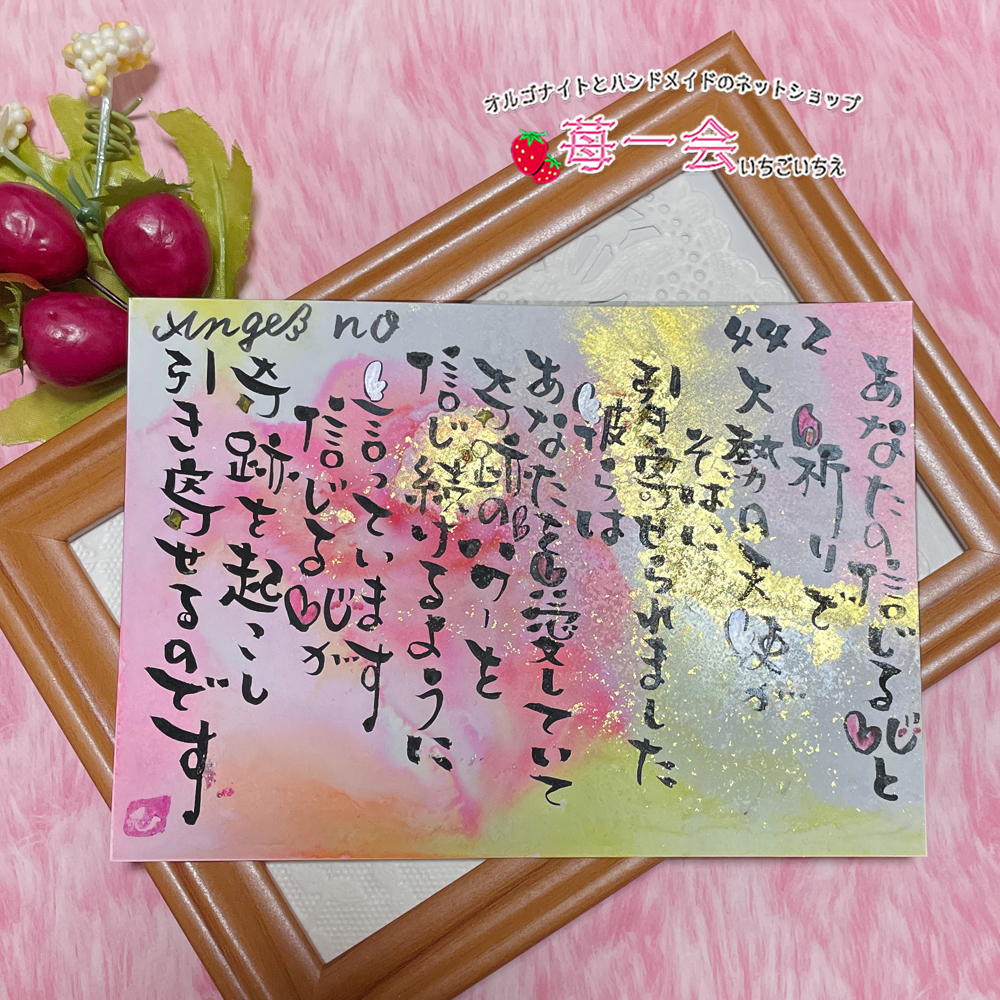 オルゴナイトとハンドメイドのネットショップ
苺一会
いちごいちえ
Angel no 442
あなたの信じる心と
祈りで
大勢の天使が
そばに
引き寄せられました
彼らは
あなたを愛していて
奇跡の
信じ続けるように
言っています
信じる心が
奇跡を起こし
引き寄せるのです